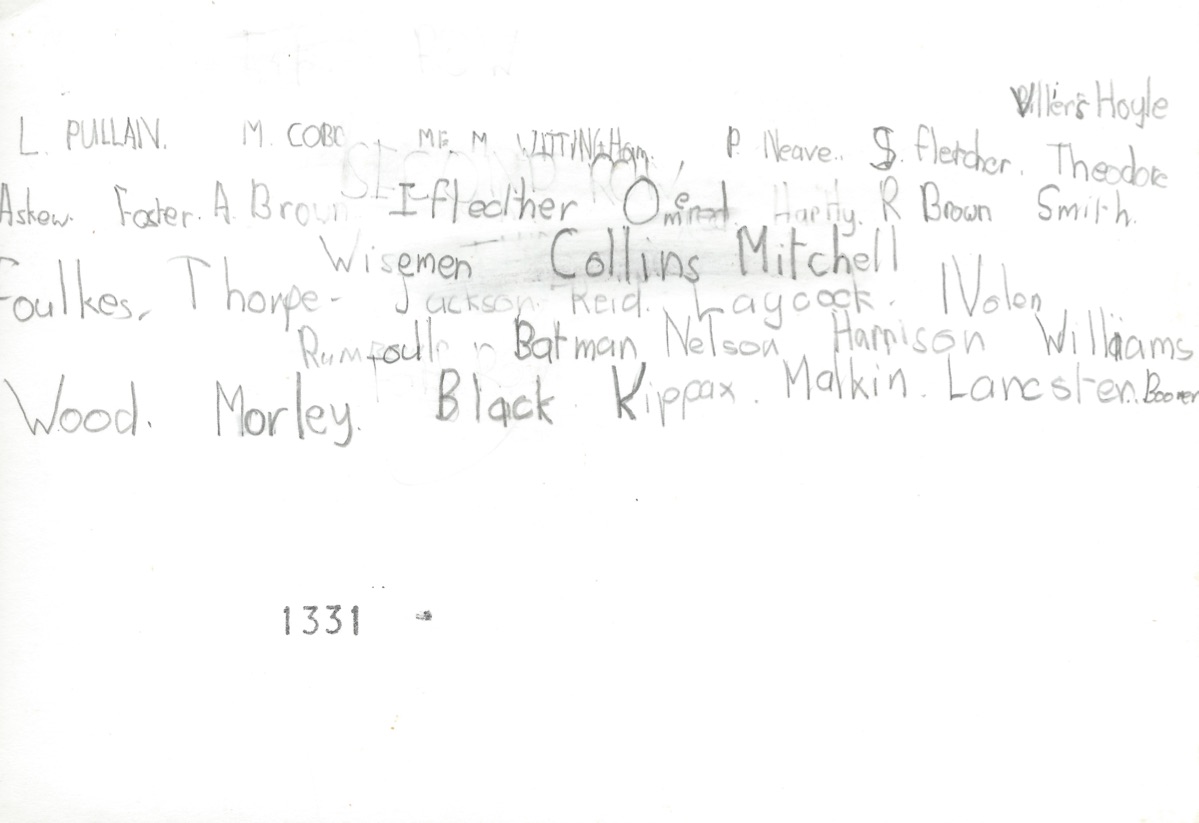 Villiers Hoyle
L. PULLAN. M. COBB MR. M. WITTINGHam, P. Neave. S. Fletcher. Theodore
Askew. Foster. A. Brown I fleather O Hartly. R Brown Smith.
Wisemen Collins Mitchell
Foulkes. Thorpe- Jackson. Reid. Laycock. Nolan
Batman Nelson Harrison Williams
Wood. Morley. Black Kippax. Malkin. Lancster. Boover
1331